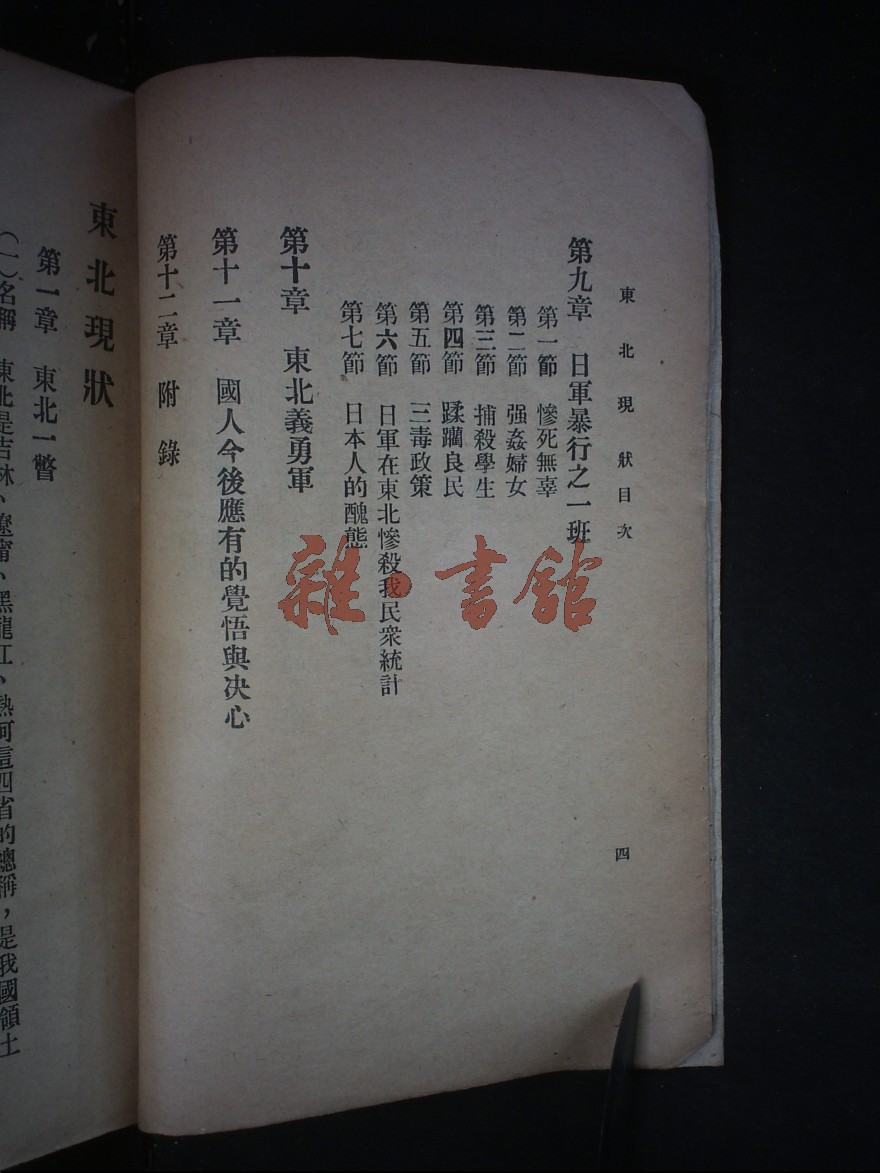 東北現狀目次
四
第九章　日軍暴行之一班
第一節　慘死無辜
第二節　强姦婦女
第三節　捕殺學生
第四節　蹂躪良民
第五節　三毒政策
第六節　日軍在東北慘殺我民衆統計
第七節　日本人的醜態
第十章　東北義勇軍
第十一章　國人今後應有的覺悟與决心
第十二章　附錄
東北現狀
第一章　東北一瞥
(一)名稱　東北是吉林、遼甯、黑龍江、熱河這四省的總稱，是我國領土
雜·書館